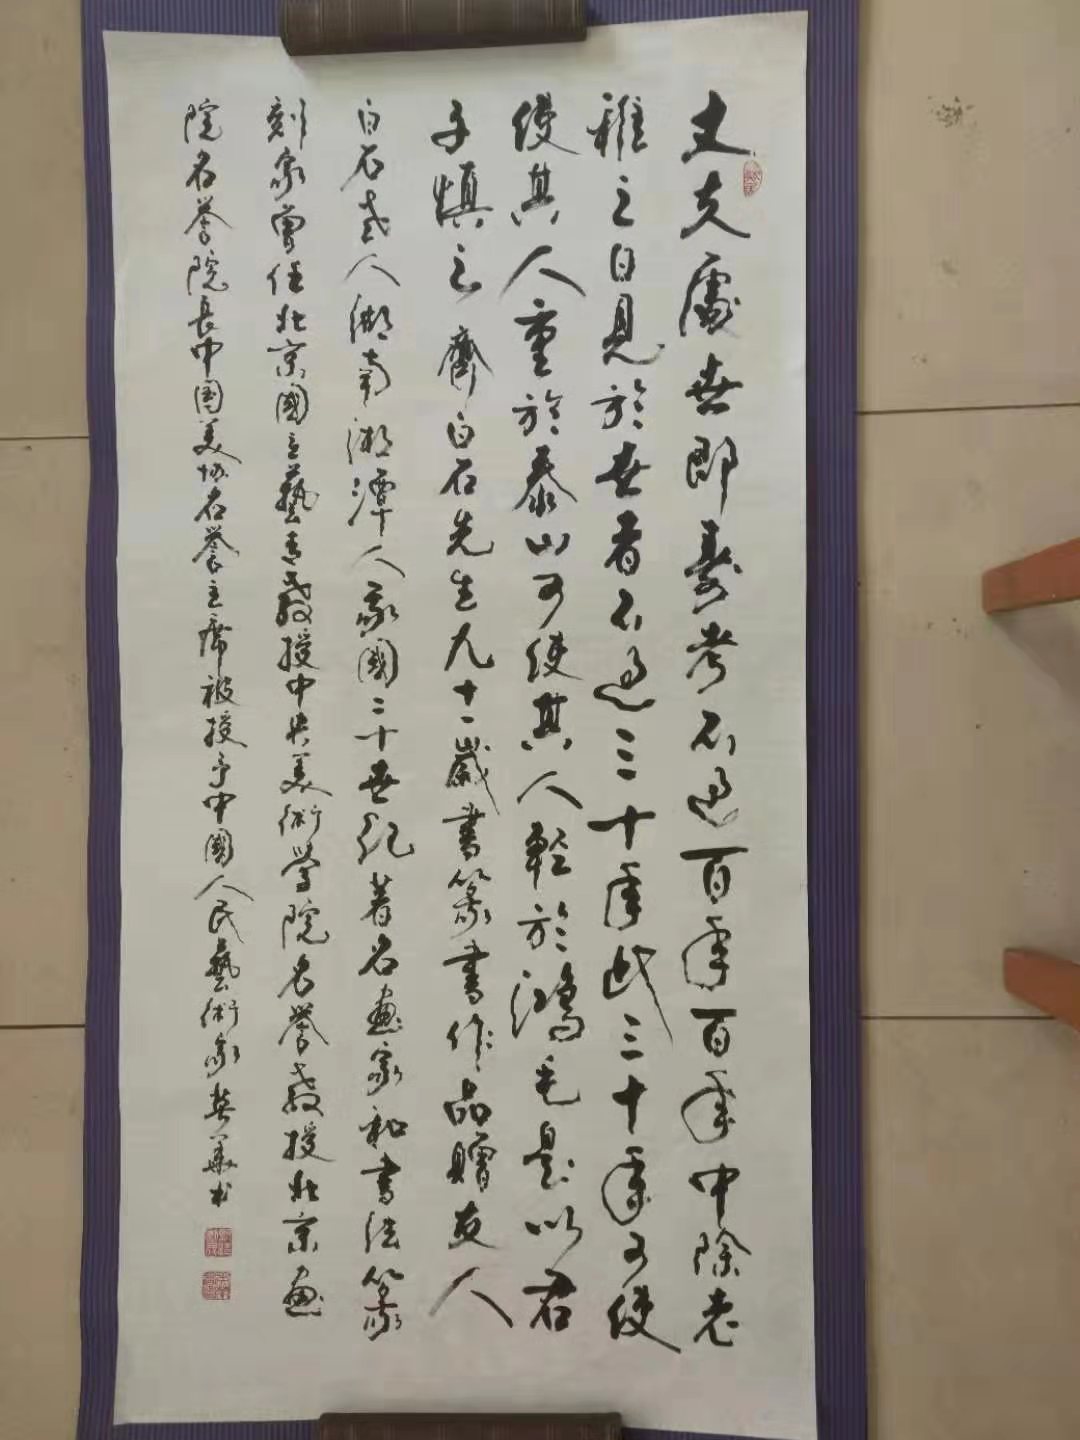 丈夫處世即壽考不過百年百年中除老
稚之日見於世者不過三十年此三十年可使
使其人重於泰山可使其人輕於鴻毛是以君
子慎之齊白石先生九十一歲書篆書作品贈友人
白石老人湖南湘潭人我國二十世紀著名画家和書法篆
刻家曾任北京國立藝專教授中央美術學院名譽教授北京画
院名誉院長中国美协名誉主席被授予中國人民藝術家